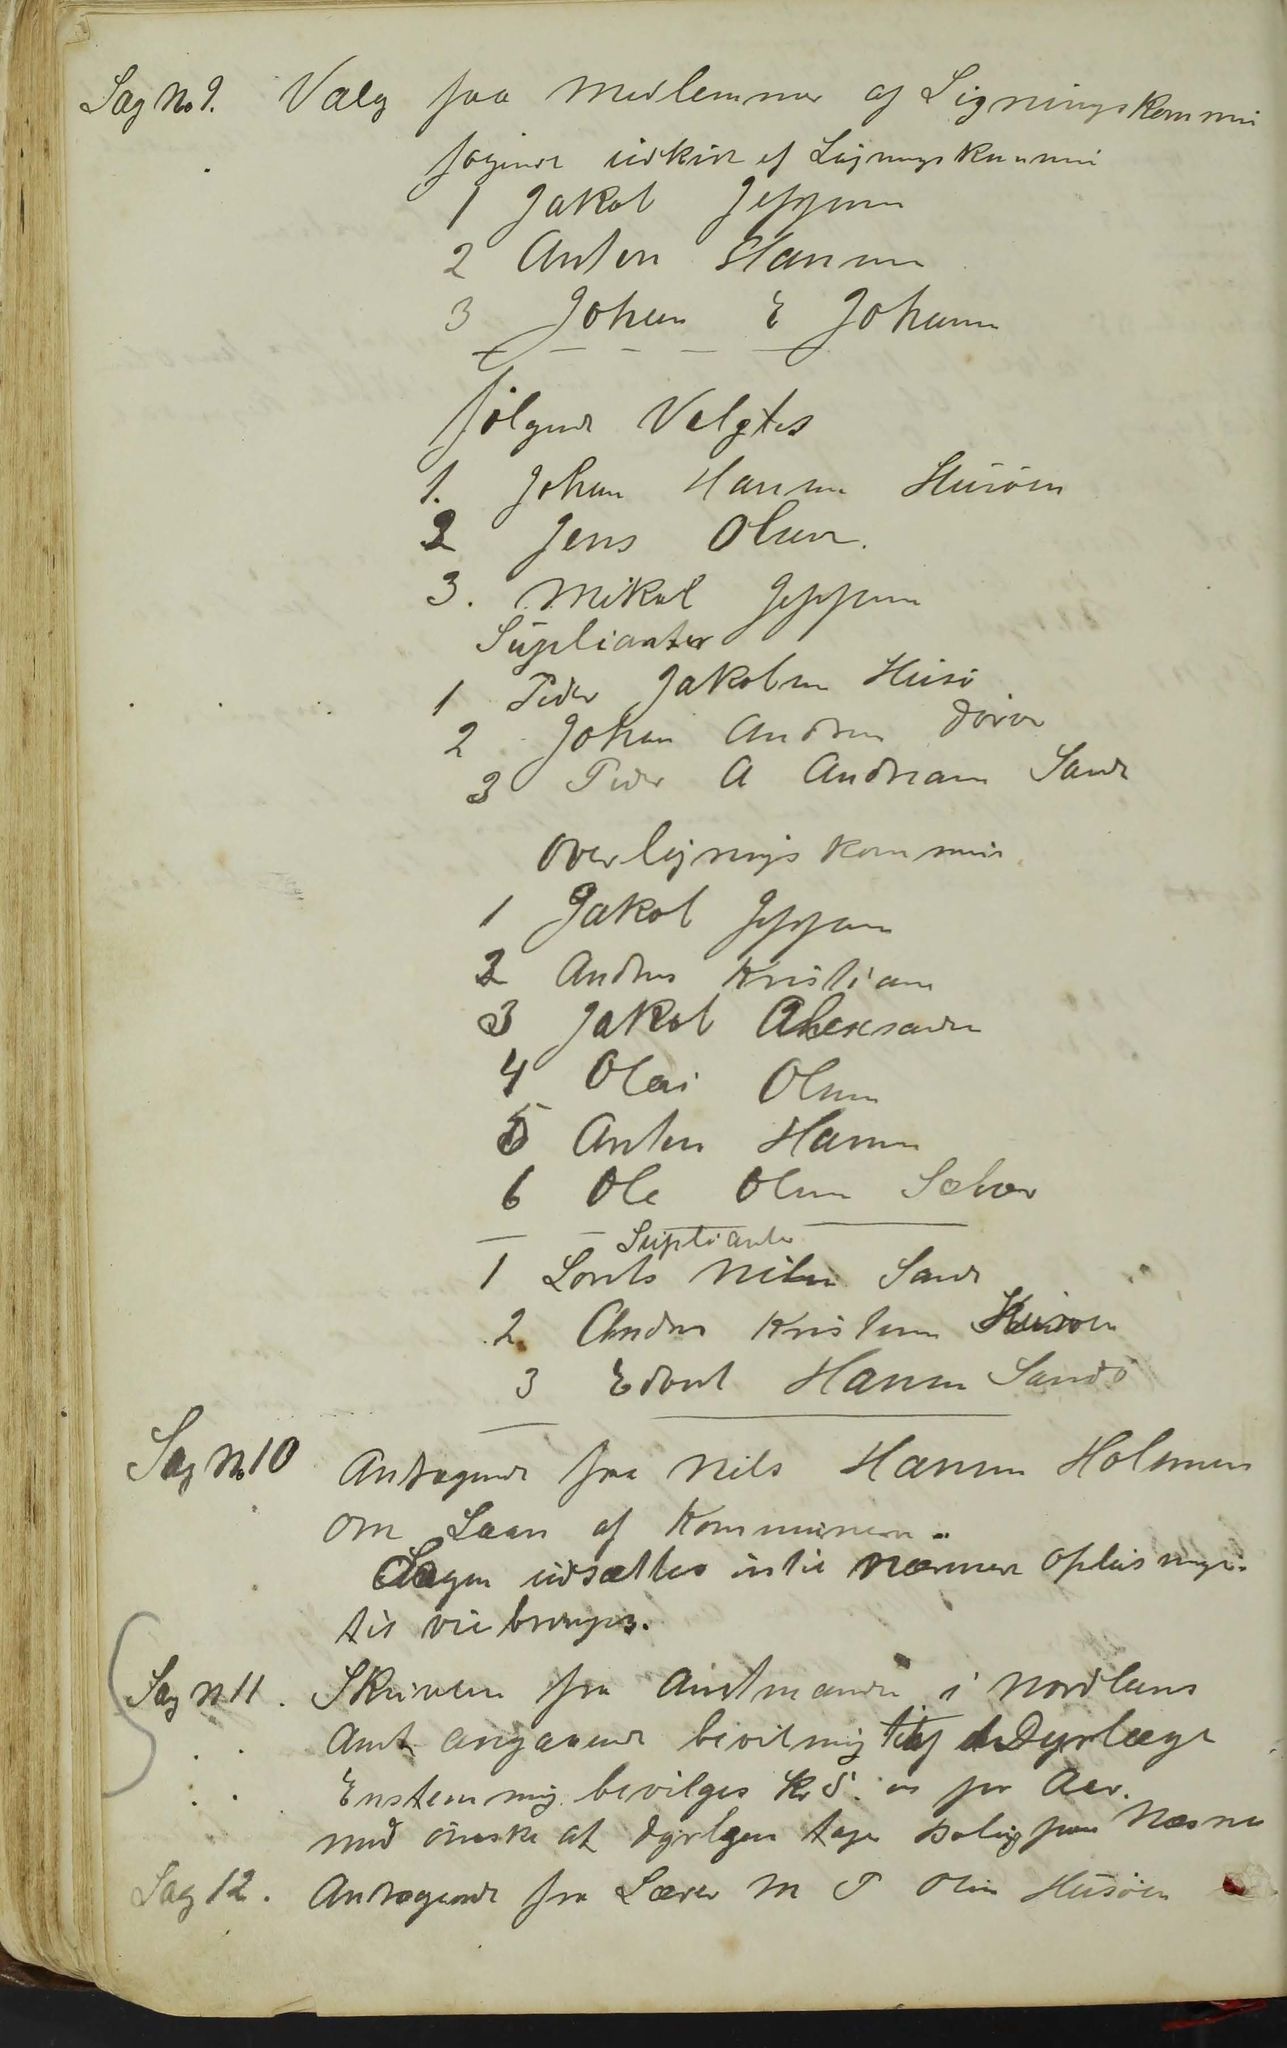 Sag No 9. Valg paa Medlemmer af Lignings Kommi
følgende udkive af Lignings Kommi
1 Jakob Jeppsen
2 Anton Hansen
3 Johan E Johansen
følgende Velgtes
1. Johan Hansen Husøen
2 Jens Olsen.
3. Mikal Jeppsen
Suplianter
1 Peder Jakobsen Husø
2 Johan Andersen
3 Peder A Andreasen Sandø
Overlignings kommi
1 Jakob Jeppsen
2 Andreas Kristians
3 Jakob Aleksander
4 Olai Olsen
5 Anton Hansen
6 Ole Olsen
Suplianter
1 Lorents Nilsen Sandø
2 Andreas Kristensen Husøen
3 Edvart Hansen Sandø
Sag No 10 Andragende fra Nils Hansen Holmen
om Laan af Kommunen.
Sagen udsættes indtil nærmere Oplysninger
tilveiebringes.
Sag N 11. Skrivelse fra Amtmanden i Nordlans
Amt angaaende bevilning til Dyrlæge
Enstemmig bevilges Kr 5. pr Aar.
med ønske at dyrlægen tager bolig paa Næsne
Sag 12. Andragende fra Lærer M P Olsen Husøen